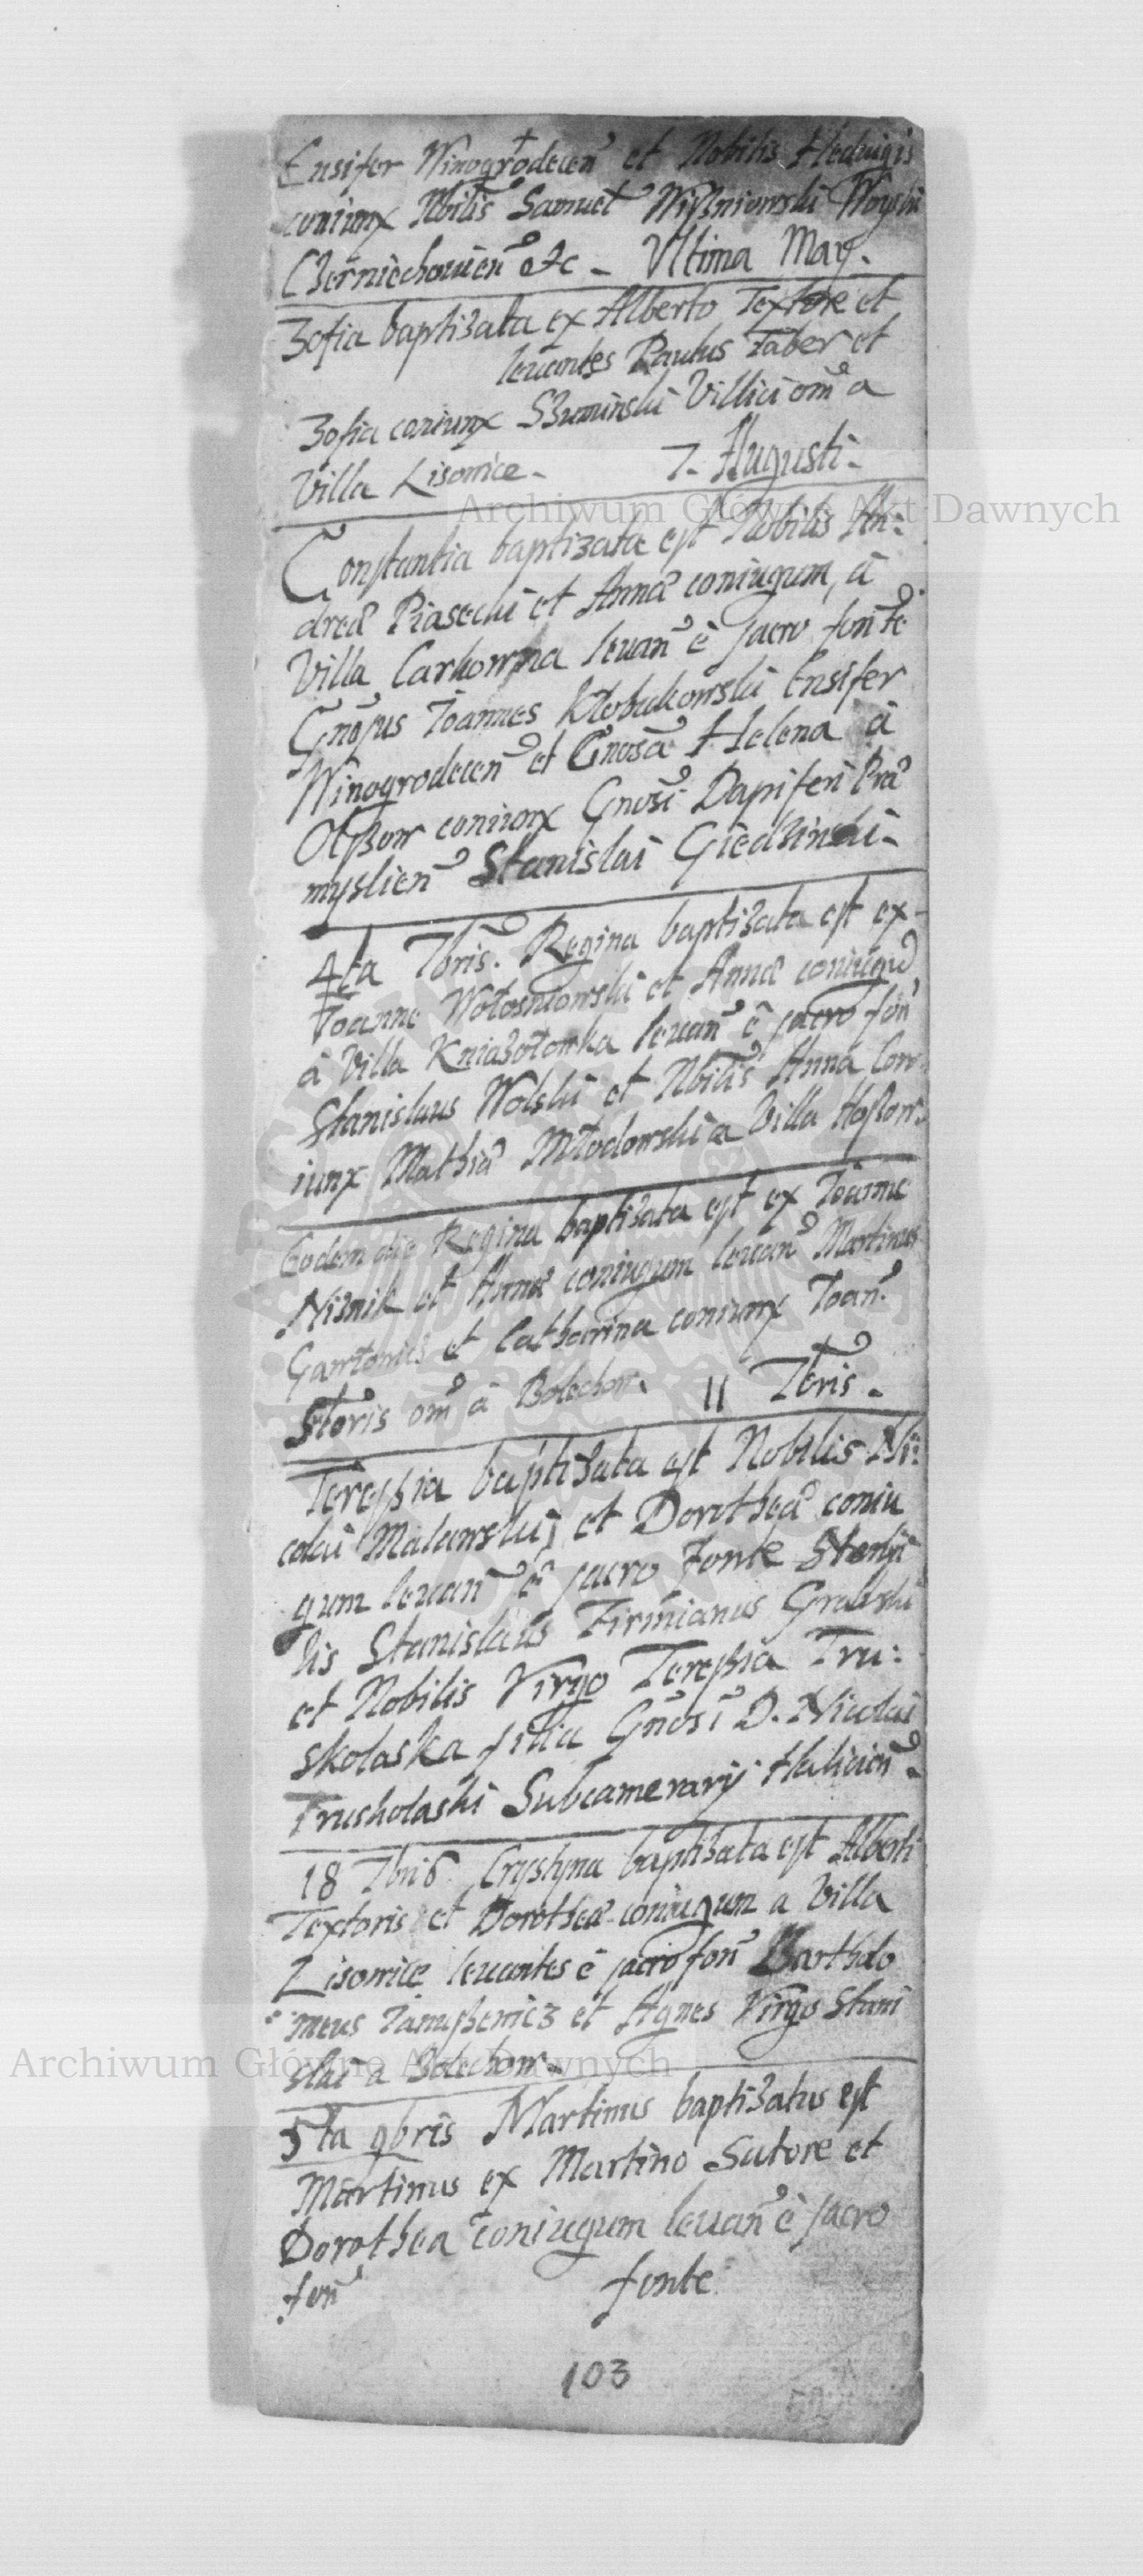 Ensifer Winogrodecen et Nobilis Hedwigis
coniunx Nbilis Samuel Wißniowski Woyski
Czerniechouien etc - Vltima May.
Zofia baptizata ex Alberto Textore et
leuantes Paulus Faber et
Zofia coniunx Szuminski Villici om a
Villa Lisowice - 7. Augusti -
Constantia baptizata est Nobilis An:
dreæ Piasecki et Annæ coniugum, à
Villa Carkowna leuan è sacro fonte
Gnosus Ioannes Kłobukowski Ensifer
Winogrodecen et Gnosa Helena à
Olßow coniunx Gnosi Dapiferi Præ
myslien Stanislai Giedzinski -
4ta 7bris. Regina baptizata est ex
Ioanne Wołosniowski et Annæ coniugu
à Villa Kniazołowka leuan è sacro fon
Stanislaus Wolski et Nbilis Anna Con
iunx Mathiæ Młodowski a Villa Hoßow
Eodem die Regina baptizata est ex Ioanne
Niznik et Annæ coniugum leuan Martinus
et Catharina coniunx Ioan
om à Bolechow. 11 7bris -
Tereßia baptizata est Nobilis Ni:
colai Malawski et Dorotheæ coniu
gum leuan è sacro fonte
lis Stanislaus Firmianus Grabski
et Nobilis Virgo Tereßia Tru:
skolaska filia Gnosi D. Nicolai
Truskolaski Subcamerarij Halicien -
18 7bris Crystyna baptizata est Alberti
Textoris et Dorotheæ coniugum a Villa
Lisowice leuantes è sacro fon Bartholo
meus Ianußewicz et Agnes Virgo Stani
slai a Bolechow -
5ta 9bris Martinus baptizatus est
Martinus ex Martino Sutore et
Dorothea coniugum leuan è sacro
fon fonte
103
Archiwum Główne Akt Dawnych
Archiwum Główne Akt Dawnych